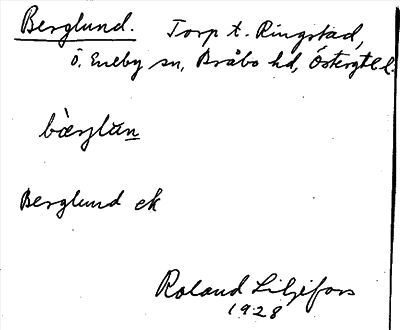 Berglund. Torp t. Ringstad,
Ö. Eneby sn, Bråbo hd, Östergtl l.
bærjlun
Berglund ek
Roland Liljefors
1928